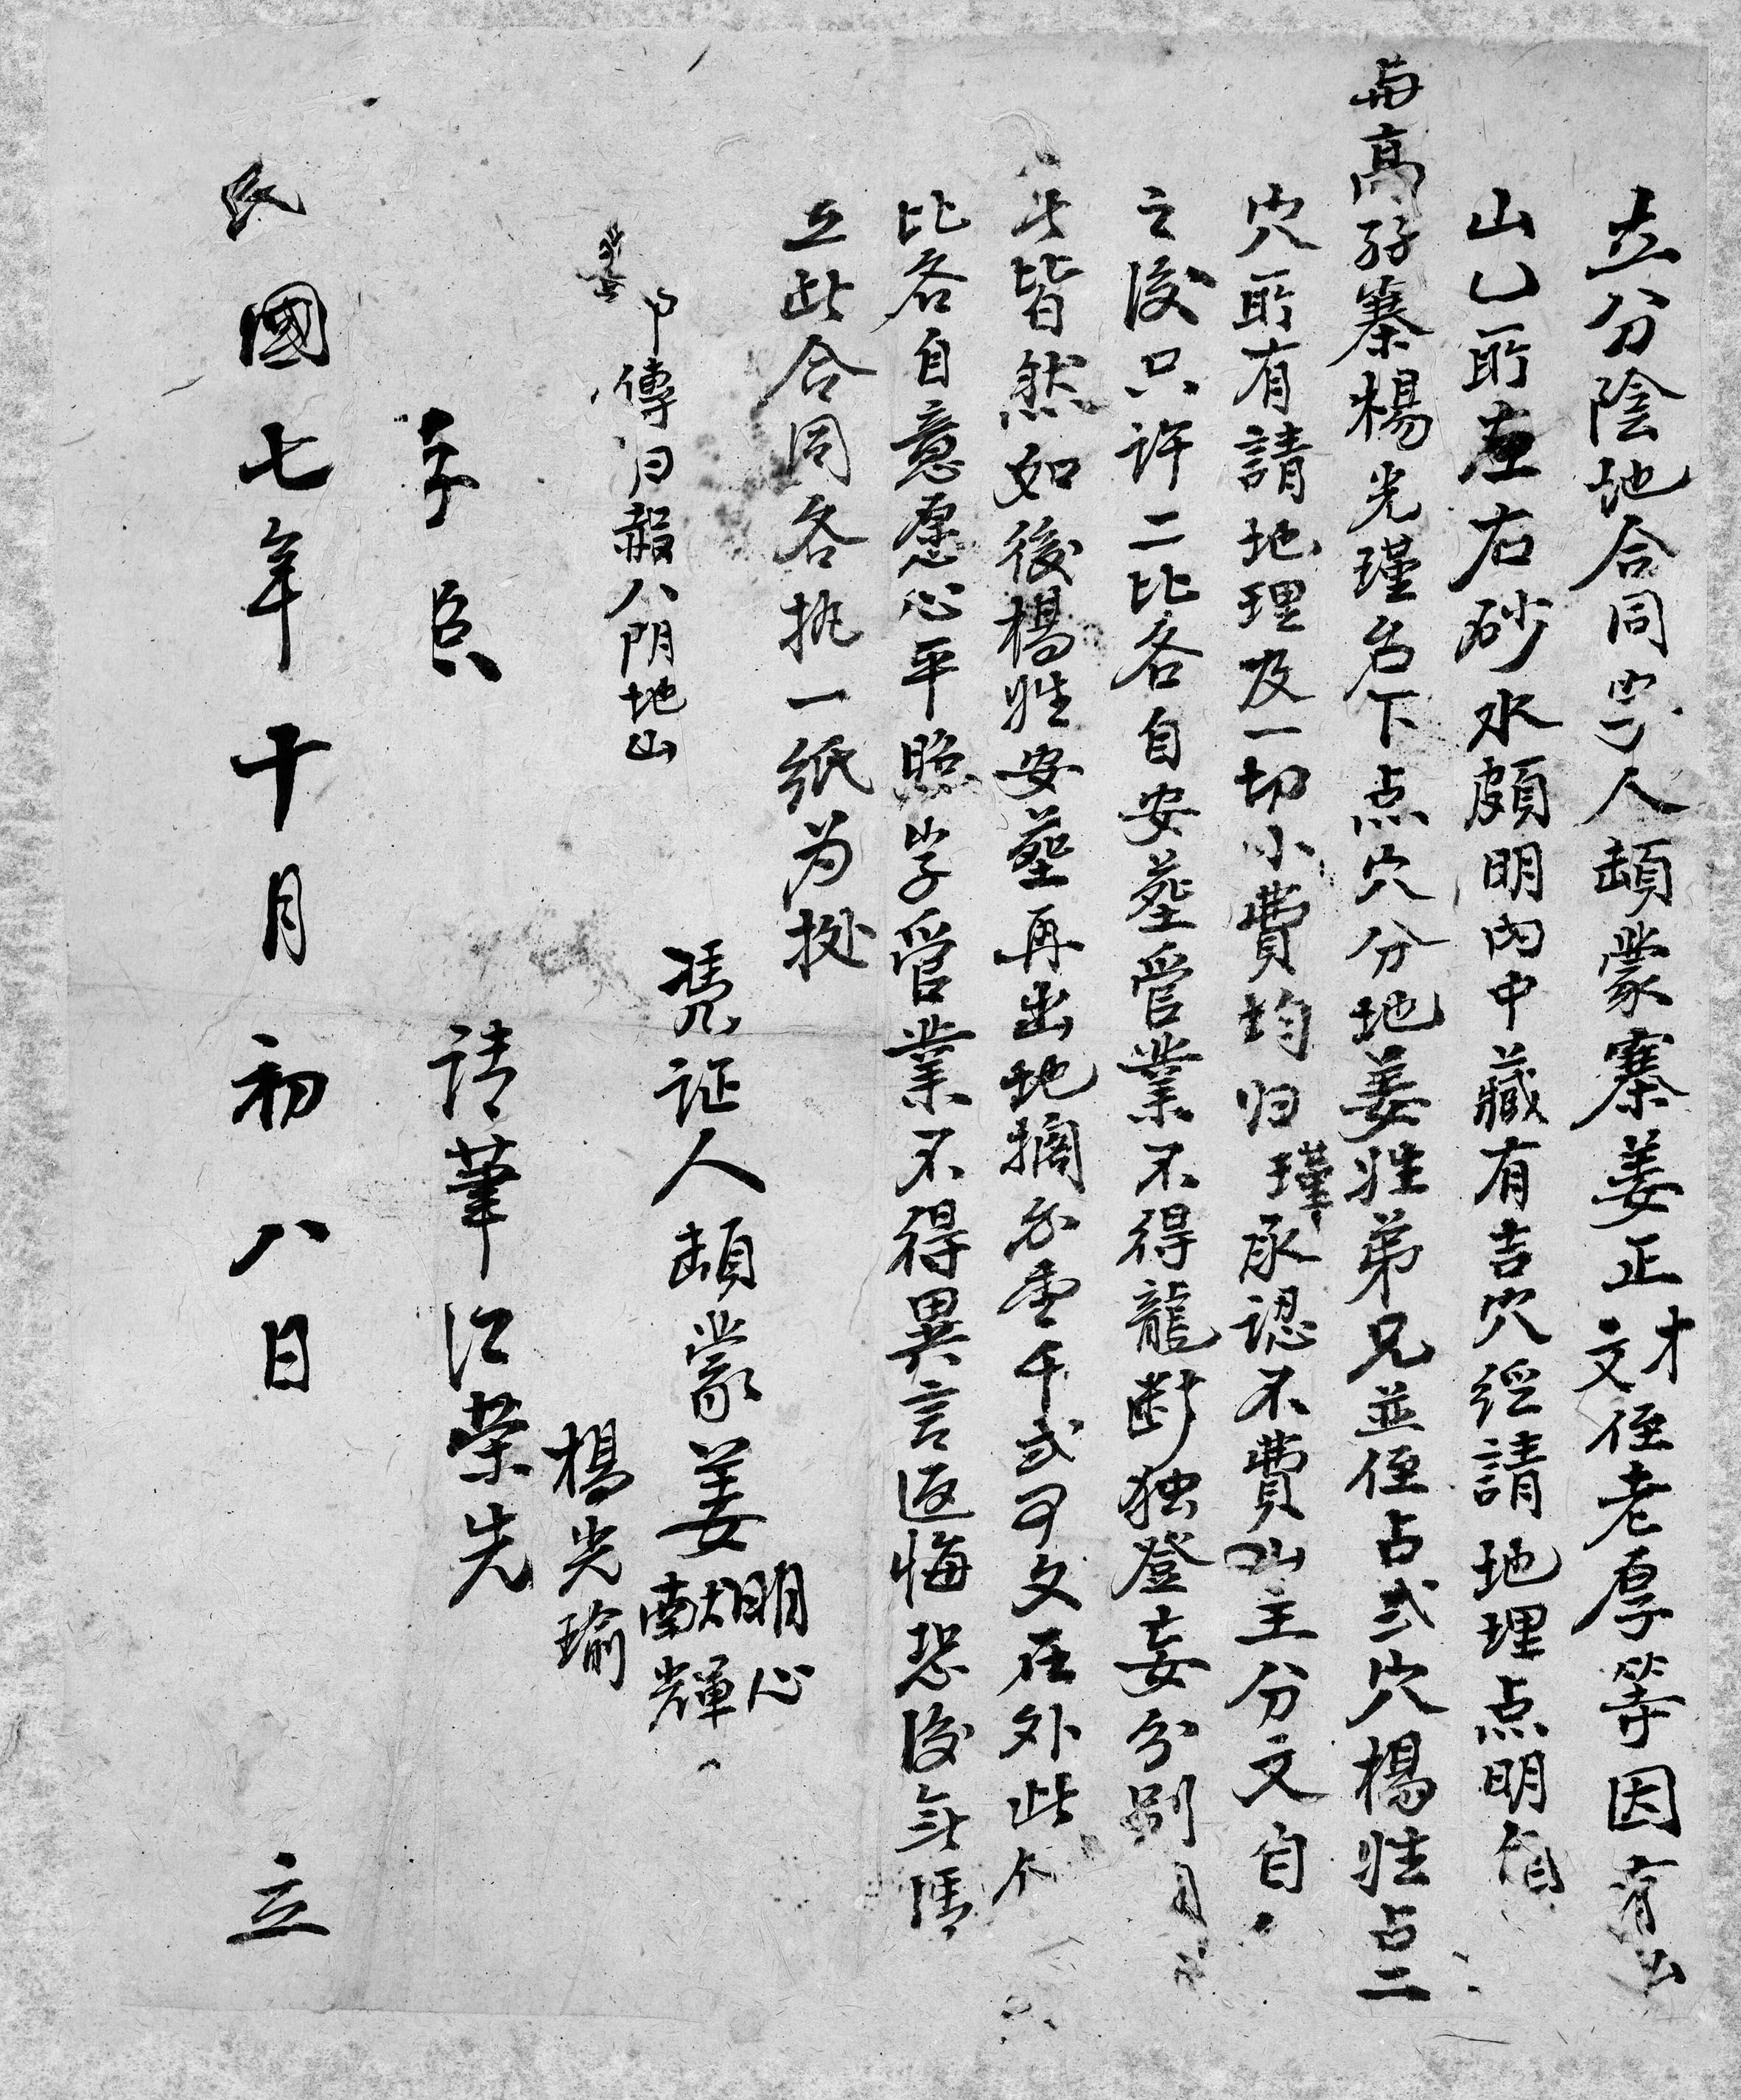 立分陰地合同字人頡蒙寨姜正才文侄老厚等因有山
山乙所左右砂水頗明內中藏有吉穴經請地理点明自
与高孖寨楊光瑾名下点穴分地姜姓弟兄並侄占弍穴楊姓占二
穴所有請地理及一切小費均归瑾承認不費山主分文自
之後只許二比各自安葬管業不得龍断独登妄分別
皆然如後楊姓安葬再出地摘錢壹千弍百文在外此
比各自意愿心平照字管業不得異言返悔恐後無憑
立此合同各执一纸为挺
傳归 八阴地山
憑証人頡蒙姜明心獻輝
楊光瑜
请筆江荣先
民國七年十月初八日立